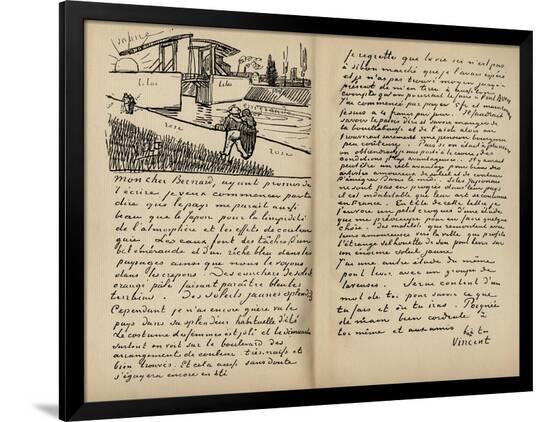 jaune
lilas
lilas
emeraude
rose
rose
mon cher Bernard, ayant promis de
t'écrire je veux commencer par te
dire que le pays me parait aussi
beau que le Japon pour la limpidité
de l'atmosphère et les effets de couleur
gaie. Les eaux font des taches d'un
bel émeraude et d'un riche bleu dans les
paysages ainsi que nous le voyons
dans les crepons. Des couchers de soleil
orangé pâle faisant paraitre bleus les
terrains. Des soleils jaunes splendides
Cependant je n'ai encore guère vu le
pays dans sa splendeur habituelle d'été
Le costume des femmes est joli et le dimanche
surtout on voit sur le boulevard des
arrangements de couleur très naïfs et
bien trouvés. Et cela aussi sans doute
s'égayera encore en été
Je regrette que la vie ici n'est pas
à si bon marché que je l'avais espéré
et je n'ai pas trouvé moyen jusqu'à
présent de m'en tirer à aussi bon
compte qu'on pourrait le faire à Pont Aven
J'ai commencé par payer 5 fr et maintenant
je suis à 4 francs par jour. Il faudrait
savoir le patois d'ici et savoir manger de
la bouillabaisse et de l'aïoli alors on
trouverait surement une pension bourgeoise
peu couteuse. Puis si on était à plusieurs
on obtiendrait je suis porté à le croire des
conditions plus avantageuses. Il y aurait
peutêtre un réel avantage pour bien des
artistes amoureux de soleil et de couleur
d'émigrer dans le midi. Si les Japonais
ne sont pas en progrès dans leur pays
il est indubitable que leur art se continue
en France. En tête de cette lettre je
t'envoie un petit croquis d'une étude
qui me préoccupe pour en faire quelque
chose. Des matelots qui remontent avec
leurs amoureuses vers la ville qui profile
l'étrange silhouette de son pont levis sur
un énorme soleil jaune
J'ai une autre étude du même
pont levis avec un groupe de
laveuses. Serai content d'un
mot de toi pour savoir ce que
tu fais et où tu iras. Poignée
de main bien cordiale à
toi même et aux amis b. à t.
Vincent